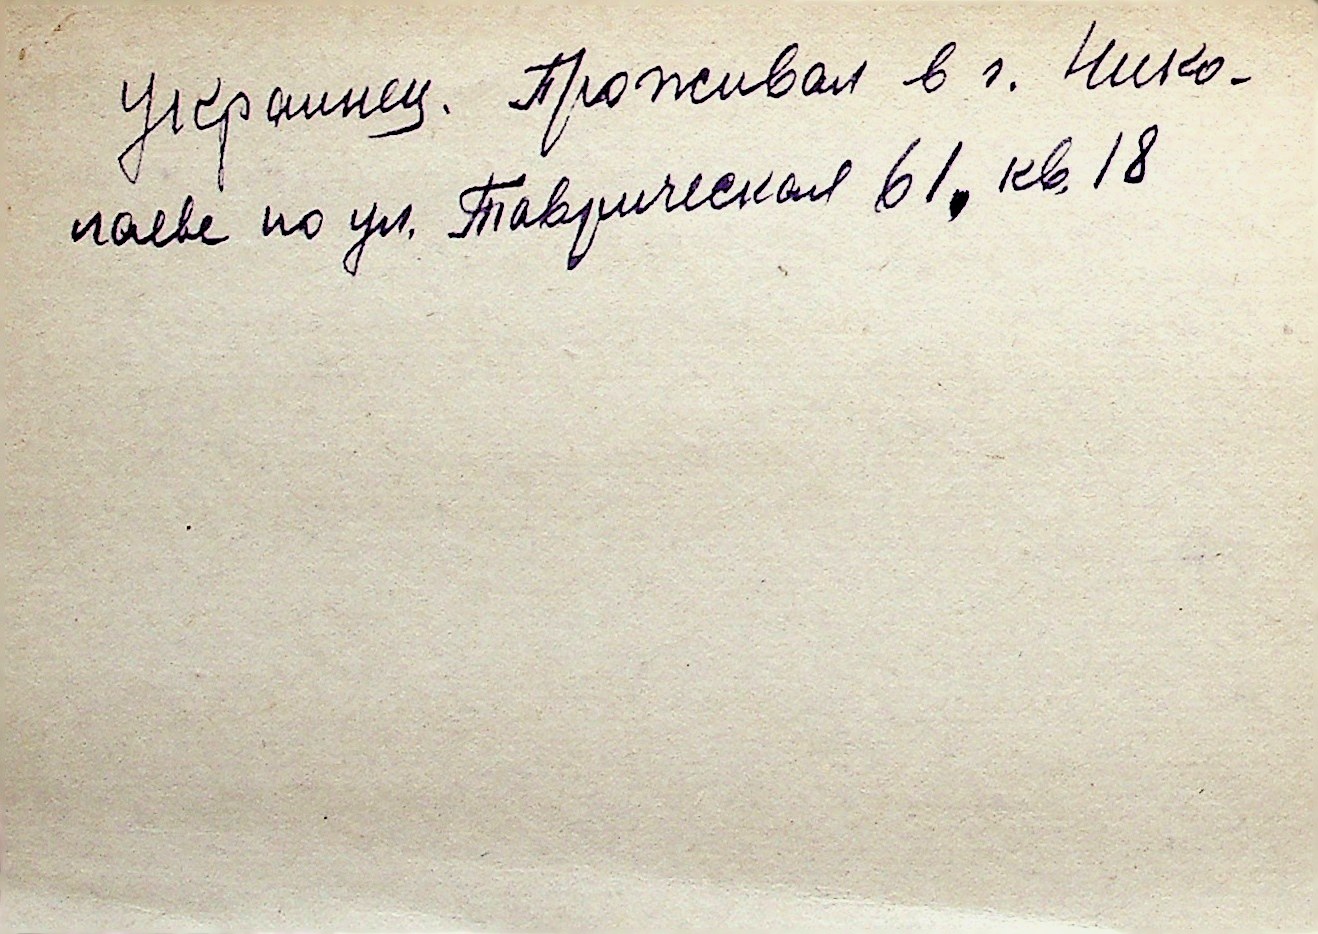 Украинец. Проживал в г. Нико-
лаеве по ул. Таврическая 61, кв. 18